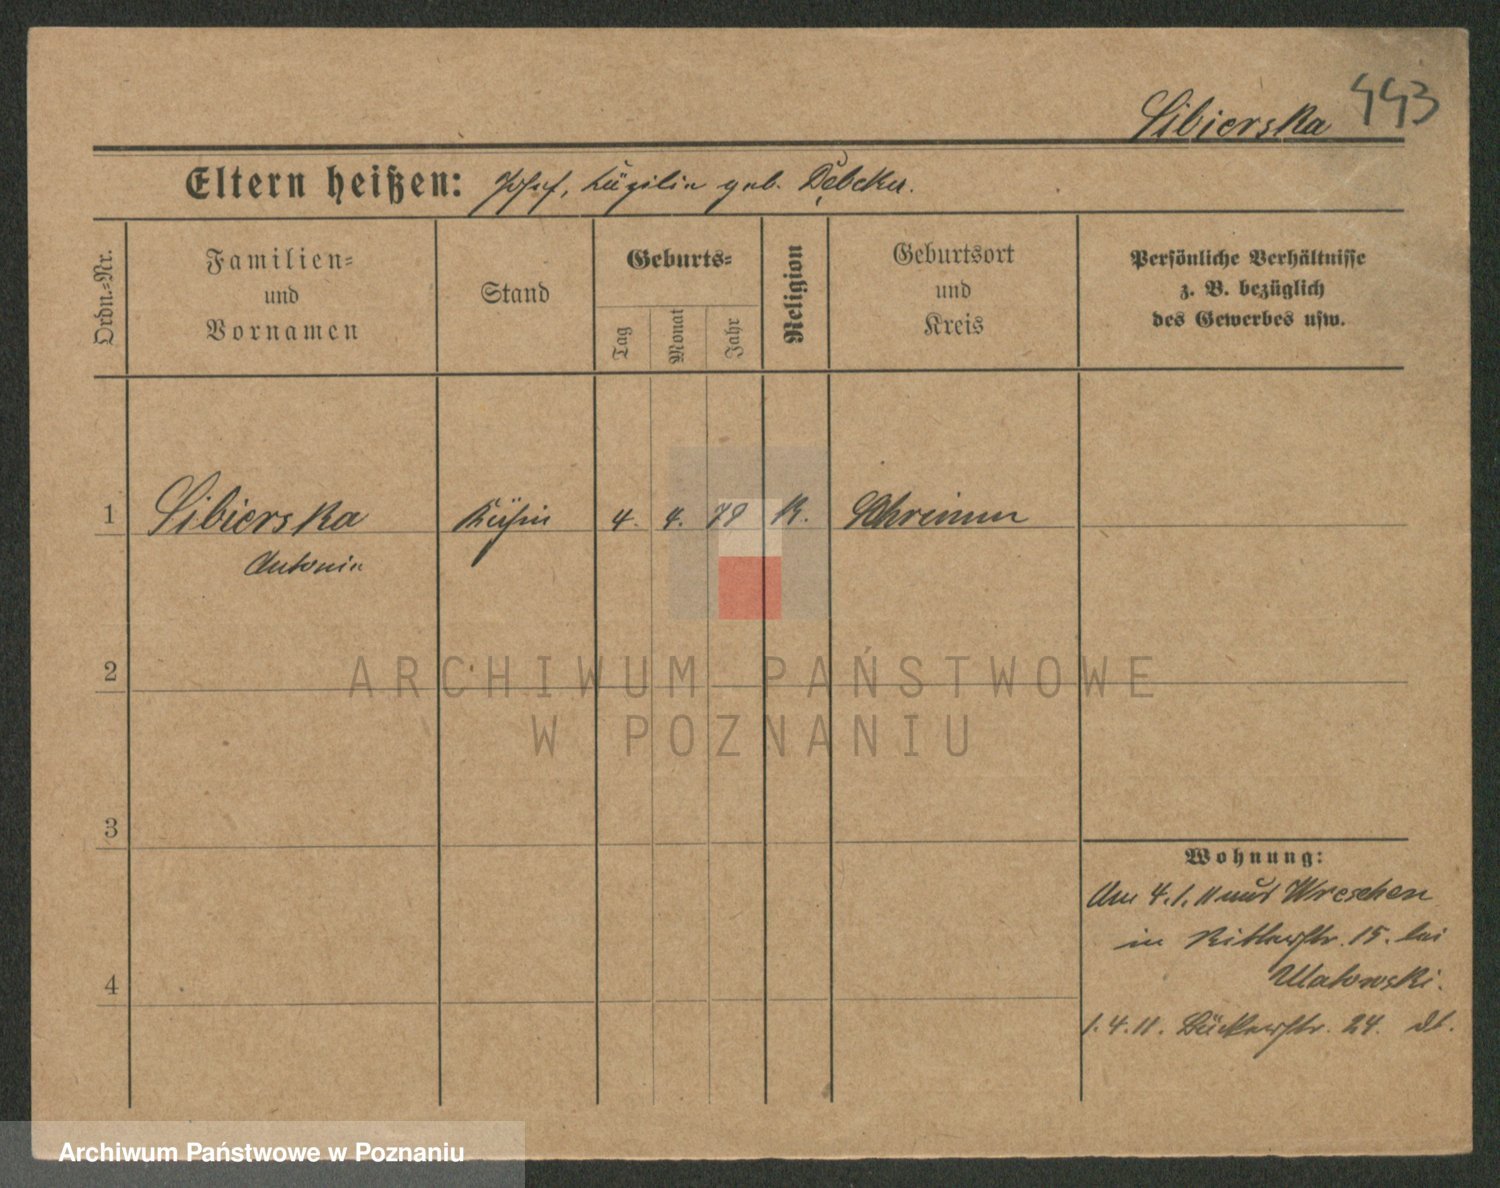 Sibierska 443
Eltern heißen: Josef, geb.
Ordn.-Nr.
Familien-
und
Vornamen
Stand
Geburts-
Tag
Monat
Jahr
Religion
Geburtsort
und
Kreis
Persönliche Verhältnisse
z. B. bezüglich
des Gewerbes usw.
1 Sibierska Köchin 4. 4. 79 K. Schrimm
Antonie
2
3
4
Wohnung:
Am 4.1.11 aus Wreschen
in Ritterstr. 15. bei
Ulatowski.
1.4.11. Bückerstr. 24. dt.
ARCHIWUM PAŃSTWOWE
W POZNANIU
Archiwum Państwowe w Poznaniu